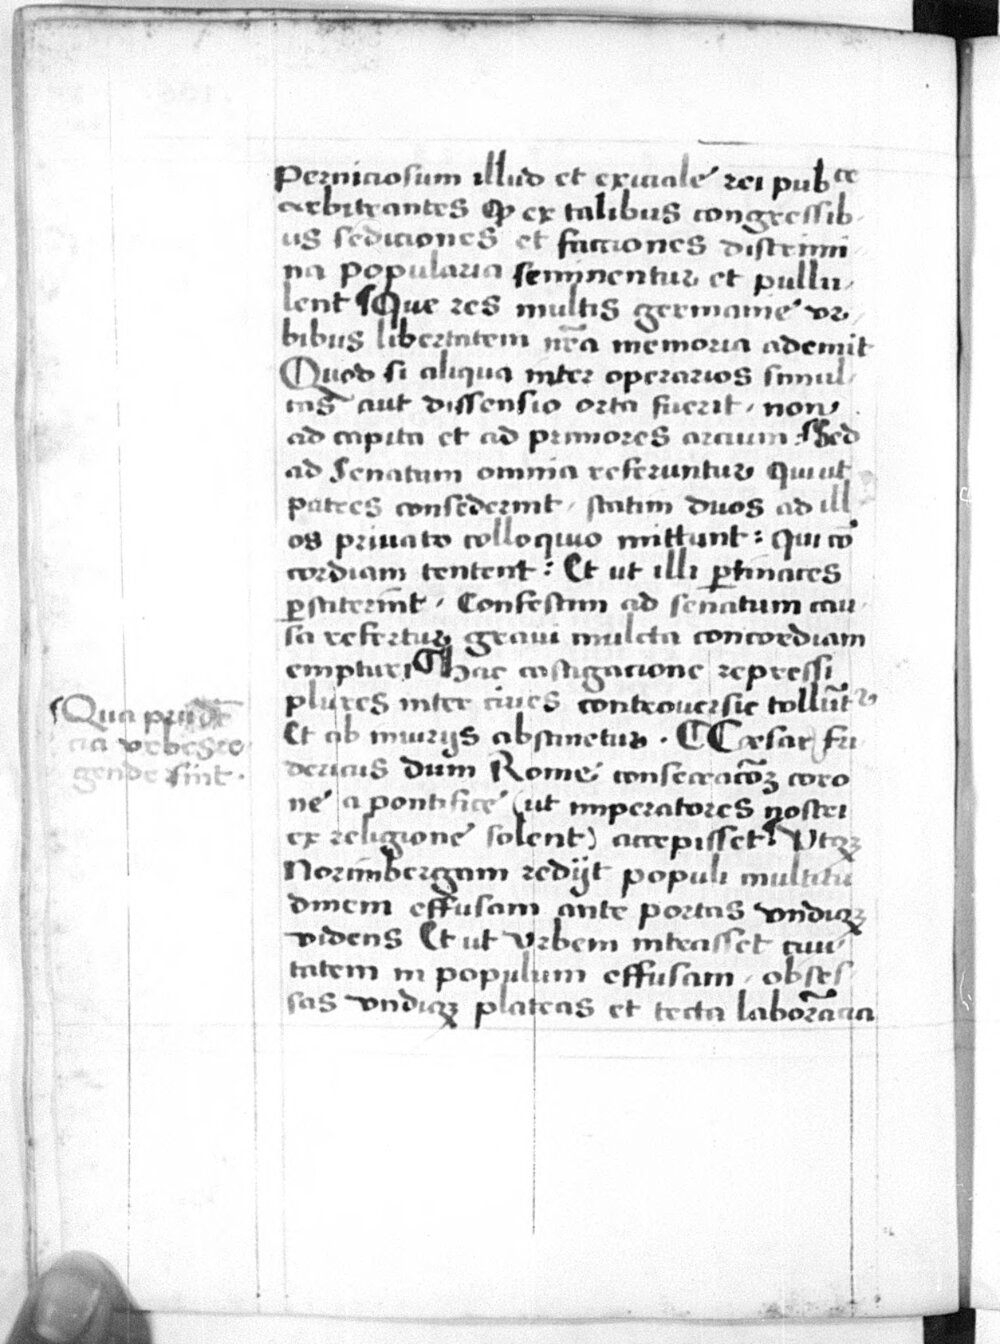 Perniciosum illud et exiciale rei pubce
arbitrantes Qp ex talibus congressib
us sediciones et factiones discrimi
na popularia seminentur et pullu
lent Que res multis germanie vr
bibus libertatem nr̄a memoria ademit
Quod si aliqua inter operarios simul
tas aut dissensio orta fuerit, non
ad capita et ad primores arcium : Sed
ad Senatum omnia referuntur Qui ut
patres consederint, statim duos ad ill
os priuato colloquio mittunt : qui cō
cordiam tentent : Et ut illi ꝑtinaces
ꝑstiterint, Confestim ad senatum cau
sa refertur graui mulcta concordiam
empturi Hac castigacione repressi
plures inter ciues controuersie tollūtr
Et ab iniurijs abstinetur . Cæsar fri
dericus dum Rome consecracōꝫ coro
ne a pontifice (ut imperatores nostri
ex religione solent) accepisset Vtqꝫ
Norimbergam redijt populi multitu
dinem effusam ante portas vndiqꝫ
videns Et ut vrbem intrasset ciui
tatem in populum effusam, obses
sas vndiqꝫ plateas et tecta laborācia
Qua prudē
cia vrbes re
gende sint .